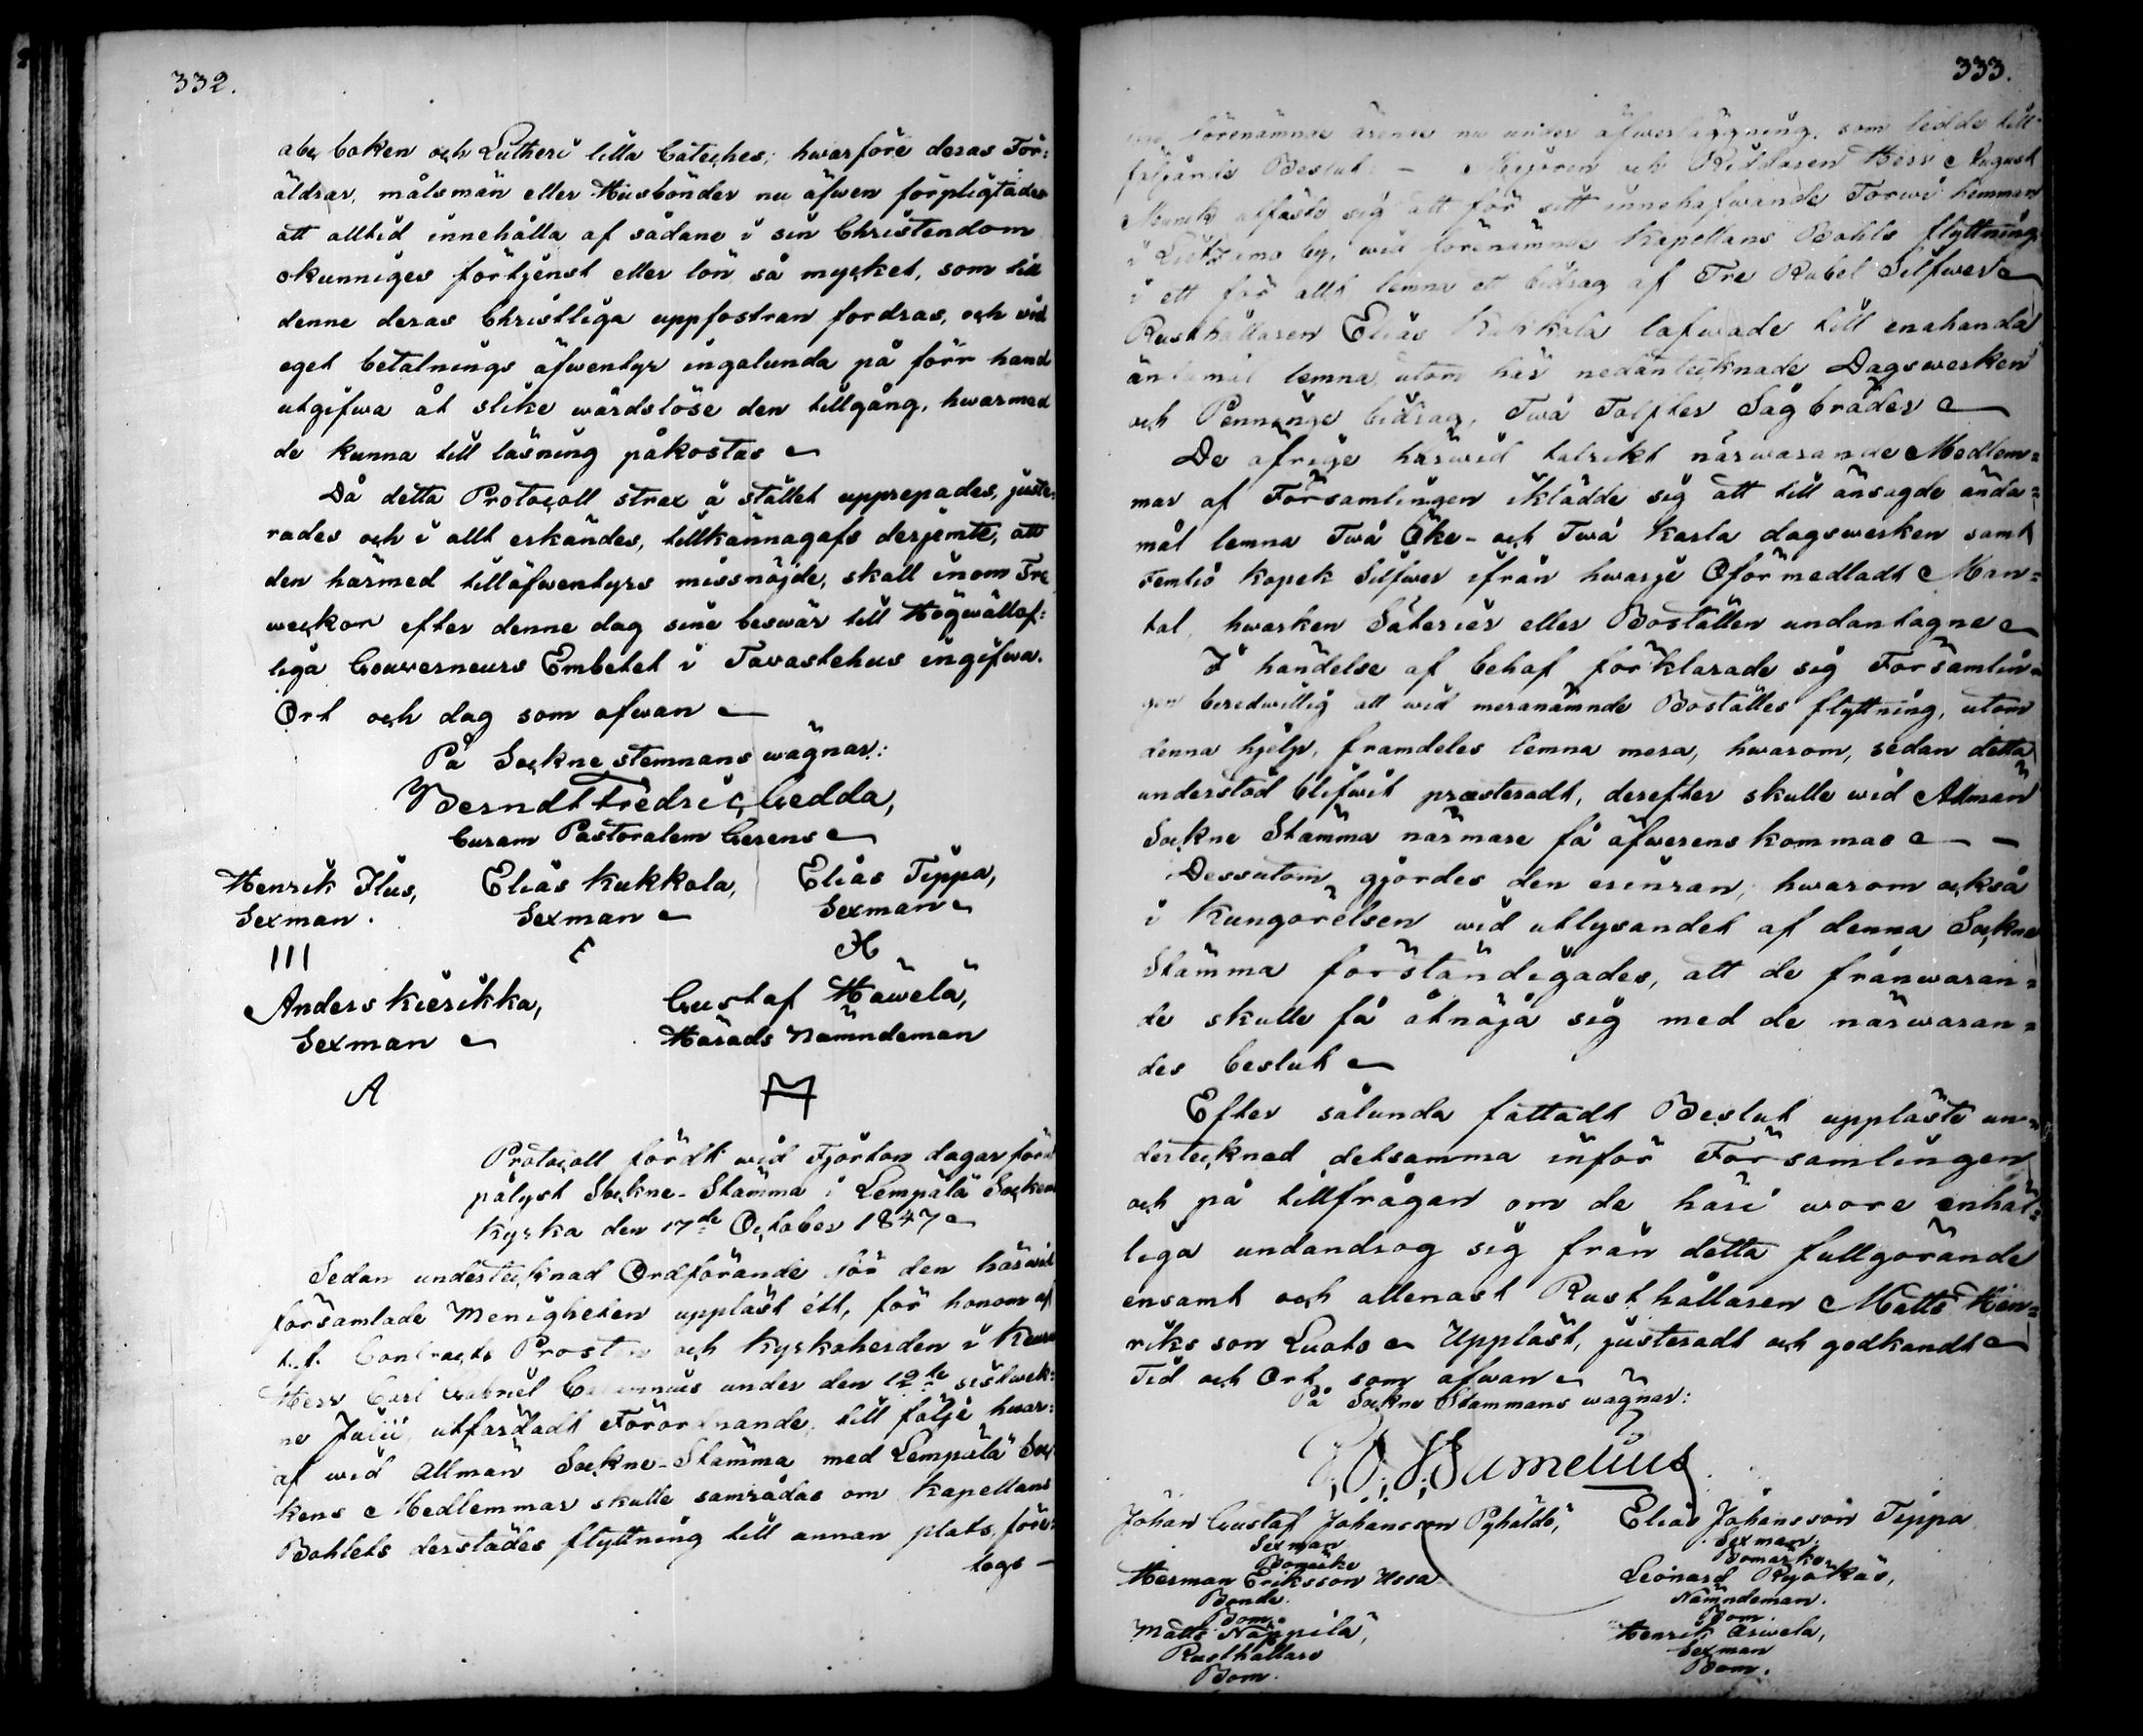 332.
abc boken och Lutheri lilla Cateches; hwarföre deras För:
äldrar, målsmän eller Husbönder nu äfwen förpligtades
att alltid innehålla af sådane i sin Christendom
okunniges förtjenst eller lön så mycket, som till
denne deras Christliga uppfostran fordras, och vid
eget betalnings äfwentyr ingalunda på förr hand
utgifwa åt slike wårdslöse den tillgång, hwarmed
de kunna till läsning påkostas
Då detta Protocoll strax å stället upprepades, juste-
rades och i allt erkändes, tillkännagafs derjemte, att
den härmed tilläfwentyrs missnöjde, skall inom Tre
weckor efter denne dag sine beswär till Högwällof:
liga Gouverneurs Embetet i Tavastehus ingifwa.
Ort och dag som ofwan
På Sockne stemnans wägnar:
Berndt Fredric Gedda,
Curam Pastoralem Gerens
Henrik Ilus, Elias Kukkola, Elias Tippa,
Sexman. Sexman Sexman
III E
Anders Kierikka, Gustaf Häwelä,
Sexman Härads Nämndeman
A
Protocoll fördt wid Fjorton dagar förut
pålyst Sockne-Stämma i Lempälä Socken
Kyrka den 17de October 1847
Sedan undertecknad Ordförande för den härwid
församlade Menigheten uppläst ett, för honom af
t.f. Contracts Prosten och Kyrkoherden i
Herr Carl Gabriel under den 12te sistwek:
ne Julii utfärdadt Förordnande, till följe hwar:
af wid Allmän Sockne-Stämma med Lempälä Soc
kens Medlemmar skulle samrådas om Kapellans
Bohlets derstädes flyttning till annan plats, före:
togs -
333.
förenämnde ärende nu under öfwerläggning, som ledde till
följande Beslut: - Majoren och Riddaren Herr August
Munck åtfäste sig att för sitt innehafwande Torwi hemman
i by, wid förenämnde Kapellans Bohls flyttning
i ett för allt lemna ett bidrag af Tre Rubel Silfwer
Rusthållaren Elias Kukkola lofwade till enahanda
ändamål lemna, utom här nedantecknade Dagswerken
och Penninge bidrag, Två Tolfter Sågbräder
De öfrige härwid talrikt närwarande Medlem=
mar af Församlingen iklädde sig att till ansagde ända=
mål lemna Twå Öke- och Twå Karla dagswerken samt
Femtio kopek Silfwer ifrån hwarje Oförmedladt Man=
tal, hwarken Säterier eller Boställen undantagne
I händelse af behof förklarade sig Församlin=
gen beredwillig att wid meranämnde Boställes flyttning, utom
denna hjelp, framdeles lemna mera, hwarom, sedan detta
understöd blifwit præsteradt, derefter skulle wid Allmän
Sockne Stämma närmare få öfwerenskommas - -
Dessutom gjordes den erinran, hwarom också
i Kungörelsen wid utlysandet af denna Sockne
Stämma förständigades, att de frånwaran=
de skulle få åtnöja sig med de närwaran=
des beslut
Efter sålunda fattadt Beslut uppläste un=
dertecknad detsamma inför Församlingen
och på tillfrågan om de häri wore enhäl=
liga undandrog sig från detta fullgörande
ensamt och allenast Rusthållaren Matts Hen=
riksson Luoto Uppläst, justeradt och godkändt
Tid och Ort som ofwan
På Sockne Stämmans wägnar:
Johan Gustaf Johansson Pyhältö, Elias Johansson Tippa
Sexman Sexman.
Bomärke Bomärke
Herman Eriksson Ussa Leonard Ryökäs,
Bonde. Nämndeman.
Bom. Bom.
Matts Näppilä, Henrik Arwela,
Rusthållare Sexman
Bom. Bom.